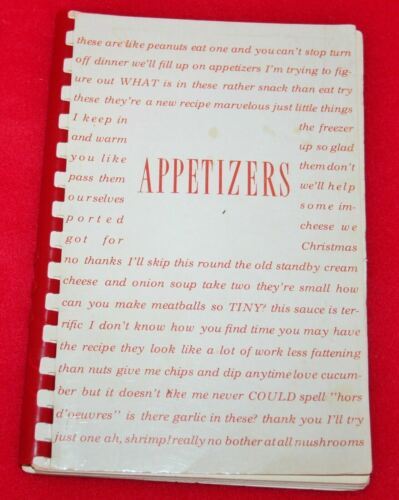 these are like peanuts eat one and you can't stop turn
off dinner we'll fill up on appetizers I'm trying to fig-
ure out WHAT is in these rather snack than eat try
these they're a new recipe marvelous just little things
I keep in the freezer
and warm up so glad
you like them don't
pass them we'll help
ourselves some im-
ported cheese we
got for Christmas
APPETIZERS
no thanks I'll skip this round the old standby cream
cheese and onion soup take two they're small how
can you make meatballs so TINY? this sauce is ter-
rific I don't know how you find time you may have
the recipe they look like a lot of work less fattening
than nuts give me chips and dip anytime love cucum-
ber but it doesn't like me never COULD spell "hors
d'oeuvres" is there garlic in these? thank you I'll try
just one ah, shrimp! really no bother at all mushrooms